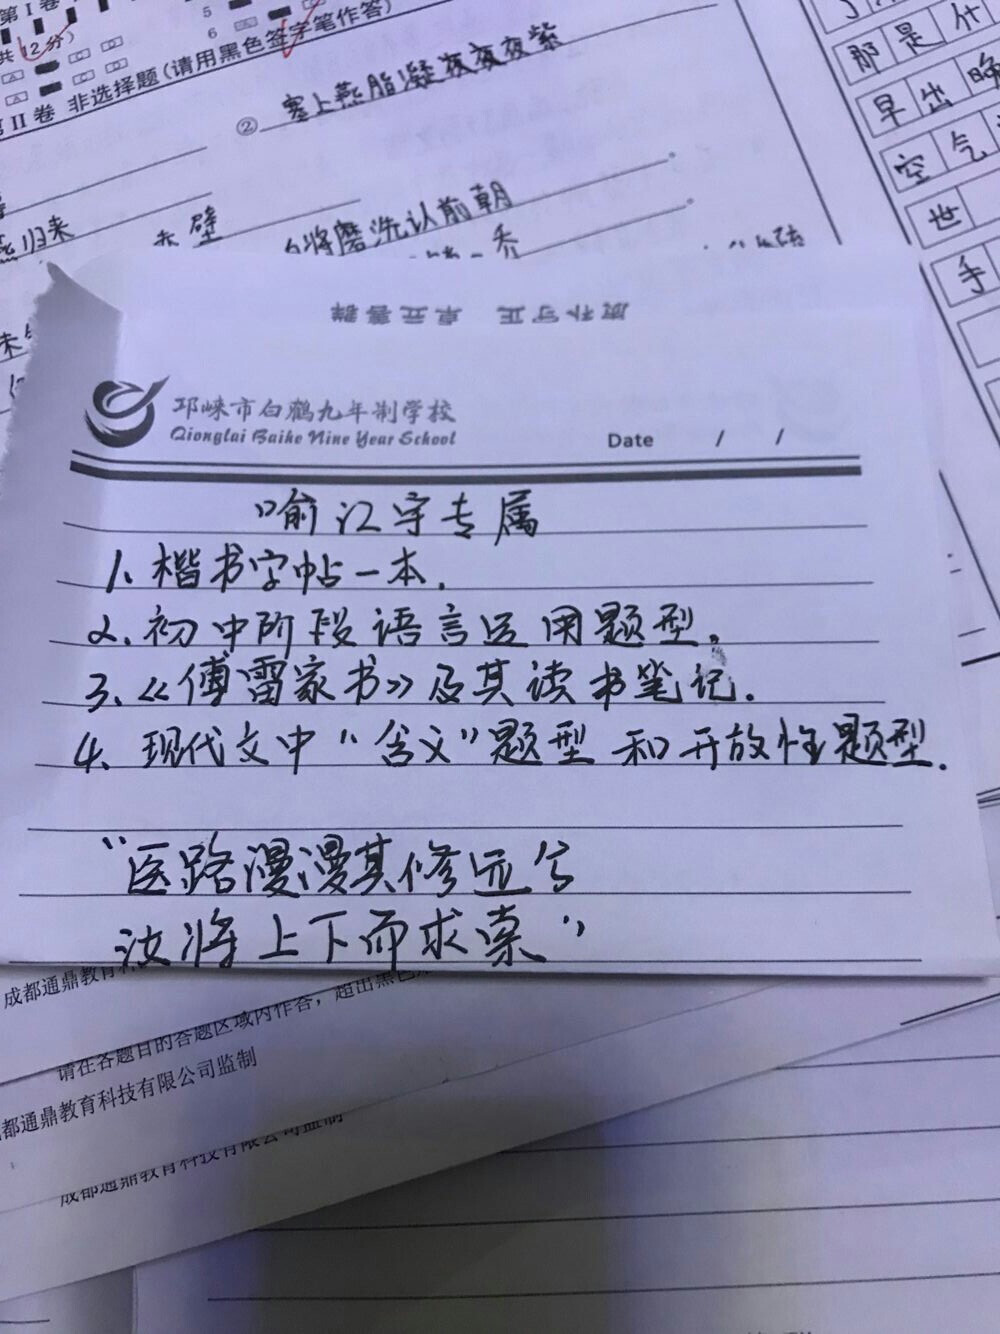 第I卷
共12分）
5
6
第II卷 非选择题（请用黑色签字笔作答）
② 塞上燕脂凝夜夜夜紫
归来
赤壁
自将磨洗认前朝
那是什
早出晚
空气
世
手
质朴守正 卓立善群
邛崃市白鹤九年制学校
Qionglai Baihe Nine Year School
Date / /
喻江宇专属
1、楷书字帖一本.
2、初中阶段语言运用题型。
3、《傅雷家书》及其读书笔记.
4、现代文中“含义”题型和开放性题型.
“医路漫漫其修远兮
汝将上下而求索”
成都通鼎教育科
请在各题目的答题区域内作答，超出黑色
都通鼎教育科技有限公司监制
成都通鼎教育科技有限公司监制